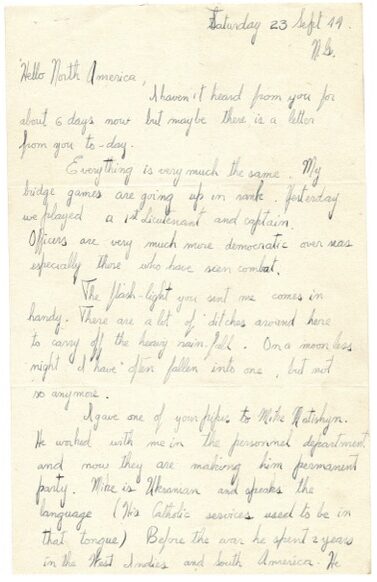 Saturday 23 Sept 44.
N.G.
Hello North America,
I haven't heard from you for
about 6 days now but maybe there is a letter
from you to-day.
Everything is very much the same. My
bridge games are going up in rank. Yesterday
we played a 1st lieutenant and captain.
Officers are very much more democratic over seas
especially those who have seen combat.
The flash-light you sent me comes in
handy. There are a lot of ditches around here
to carry off the heavy rain falls. On a moon less
night I have often fallen into one, but not
so anymore.
I gave one of your pipes to Mike
He worked with me in the personnel department
and now they are making him permanent
party. Mike is Ukranian and speaks the
language (His Catholic services used to be in
that tongue) Before the war he spent 2 years
in the West Indies and South America. He